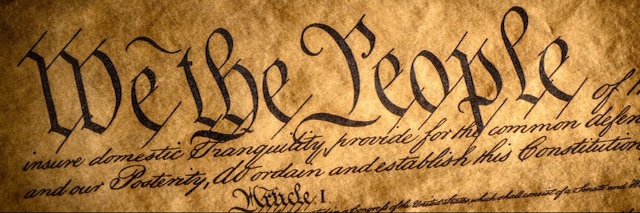 We the People of
insure domestic Tranquility, provide for the common defen
and our Posterity, do ordain and establish this Constitution
Article I
Congress of the United States, which shall consist of a Senate and